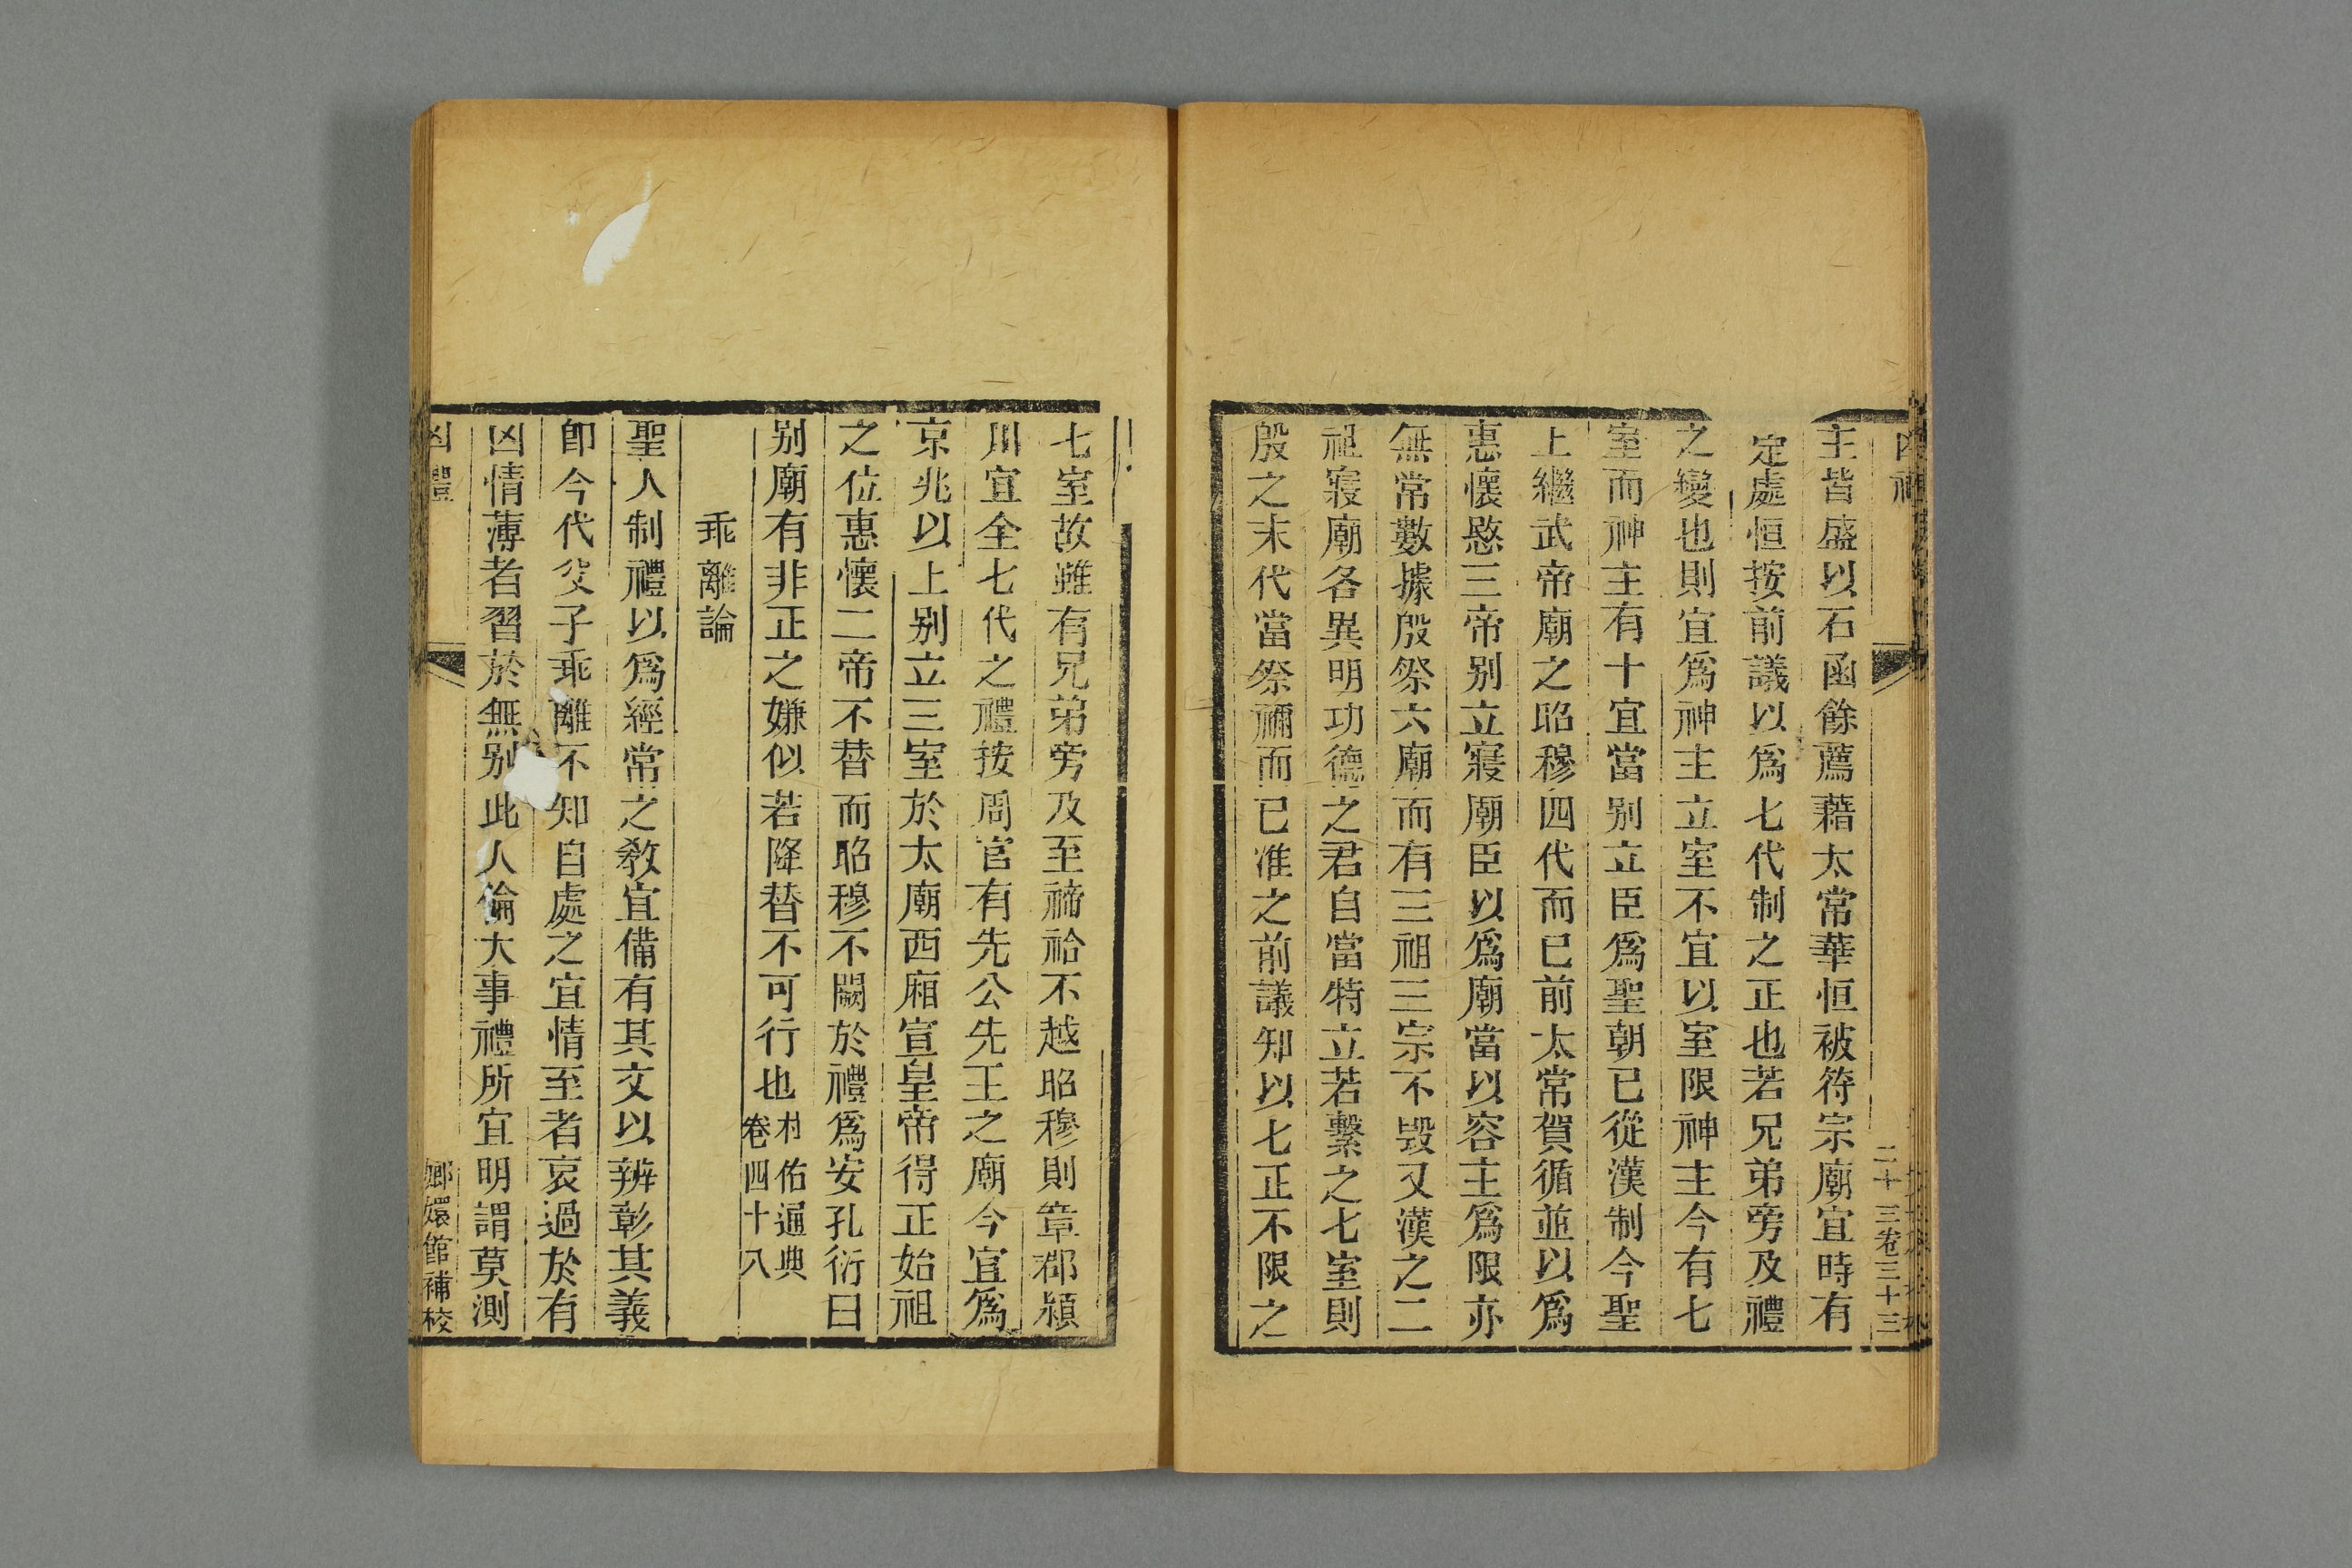 凶禮
二十三卷三十三
主皆盛以石函餘薦藉太常華恒被符宗廟宜時有
定處恒按前議以爲七代制之正也若兄弟旁及禮
之變也則宜爲神主立室不宜以室限神主今有七
室而神主有十宜當别立臣爲聖朝已從漢制今聖
上繼武帝廟之昭穆四代而已前太常賀循並以爲
惠懷愍三帝别立寢廟臣以爲廟當以容主爲限亦
無常數據殷祭六廟而有三祖三宗不毁又漢之二
祖寢廟各異明功德之君自當特立若繫之七室則
殷之末代當祭禰而已准之前議知以七正不限之
七室故雖有兄弟旁及至禘祫不越昭穆則章郡潁
川宜全七代之禮按周官有先公先王之廟今宜爲
京兆以上别立三室於太廟西廂宣皇帝得正始祖
之位惠懷二帝不替而昭穆不闕於禮爲安孔衍曰
别廟有非正之嫌似若降替不可行也杜佑通典卷四十八
乖離論
聖人制禮以爲經常之教宜備有其文以辨彰其義
卽今代父子乖離不知自處之宜情至者哀過於有
凶情薄者習於無别此人倫大事禮所宜明謂莫測
凶禮
嫏嬛館補校